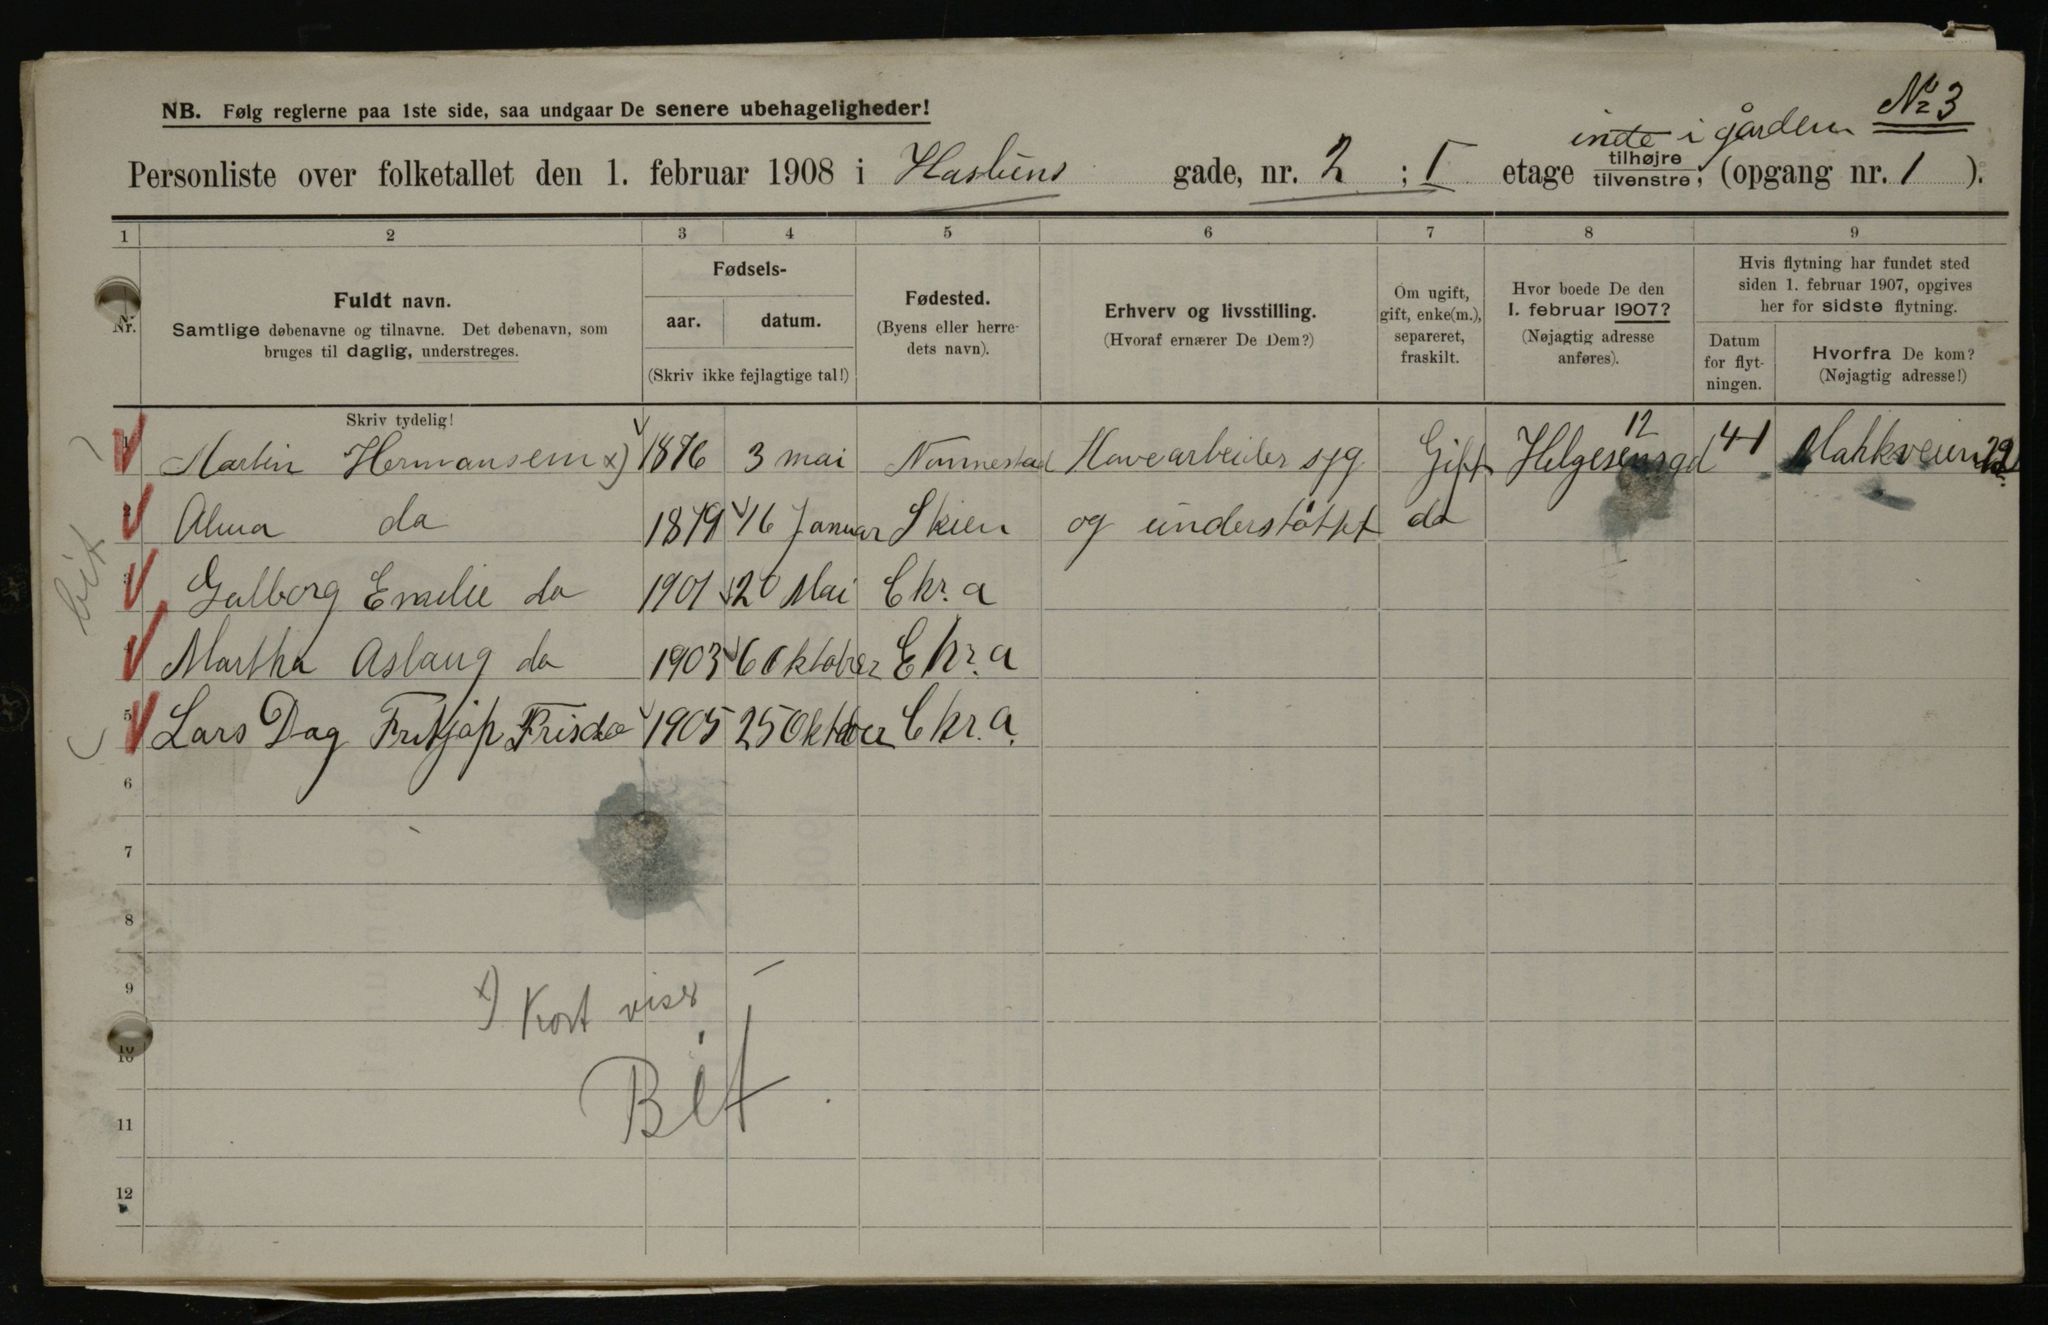 NB. Følg reglerne paa 1ste side, saa undgaar De senere ubehageligheder!
No 3
inde i gården
Personliste over folketallet den 1. februar 1908 i Haslums gade, nr. 2 ; I etage tilhøjre tilvenstre, (opgang nr. 1 ).
1 2 3 4 5 6 7 8 9
Nr.
Fuldt navn.
Samtlige døbenavne og tilnavne. Det døbenavn, som
bruges til daglig, understreges.
Skriv tydelig!
Fødsels-
aar. datum.
(Skriv ikke fejlagtige tal!)
Fødested.
(Byens eller herre-
dets navn).
Erhverv og livsstilling.
(Hvoraf ernærer De Dem?)
Om ugift,
gift, enke(m.),
separeret,
fraskilt.
Hvor boede De den
1. februar 1907?
(Nøjagtig adresse
anføres).
Hvis flytning har fundet sted
siden 1. februar 1907, opgives
her for sidste flytning.
Datum
for flyt-
ningen.
Hvorfra De kom?
(Nøjagtig adresse!)
1 Martin Hermansen x) 1876 3 mai Nonnestad Havearbeider syg Gift Helgesensgd 12 4-1 Markveien
2 Alma do 1879 16 Januar Skien og understøttet do
3 Galborg Emilie do 1901 20 Mai Chr. a
4 Martha Aslaug do 1903 6 Oktober Chr. a
5 Lars Dag Fritjof Fris do 1905 25 Oktober Chr. a.
6
7
8
9
10
11
12
bit
x) Kort viser
Bit